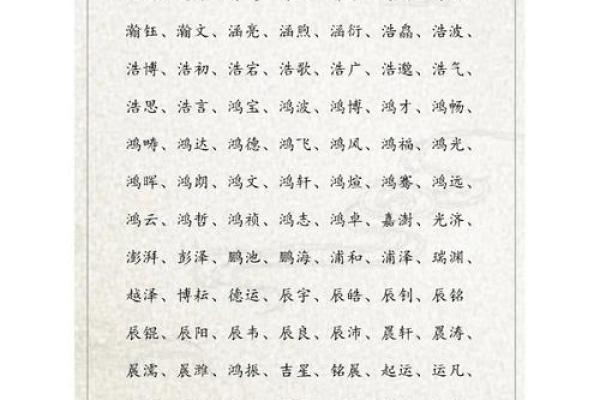 瀚钰、瀚文、涵亮、涵煦、涵衍、浩磊、浩波、
浩博、浩初、浩宕、浩歌、浩广、浩邈、浩气、
浩思、浩言、鸿宝、鸿波、鸿博、鸿才、鸿畅、
鸿畴、鸿达、鸿德、鸿飞、鸿风、鸿福、鸿光、
鸿晖、鸿朗、鸿文、鸿轩、鸿煊、鸿骞、鸿远、
鸿云、鸿哲、鸿祯、鸿志、鸿卓、嘉澍、光济、
澎湃、彭泽、鹏池、鹏海、浦和、浦泽、瑞渊、
越泽、博耘、德运、辰宇、辰皓、辰钊、辰铭
辰锟、辰阳、辰韦、辰良、辰沛、晨轩、晨涛、
晨濡、晨潍、鸿振、吉星、铭晨、起运、运凡、